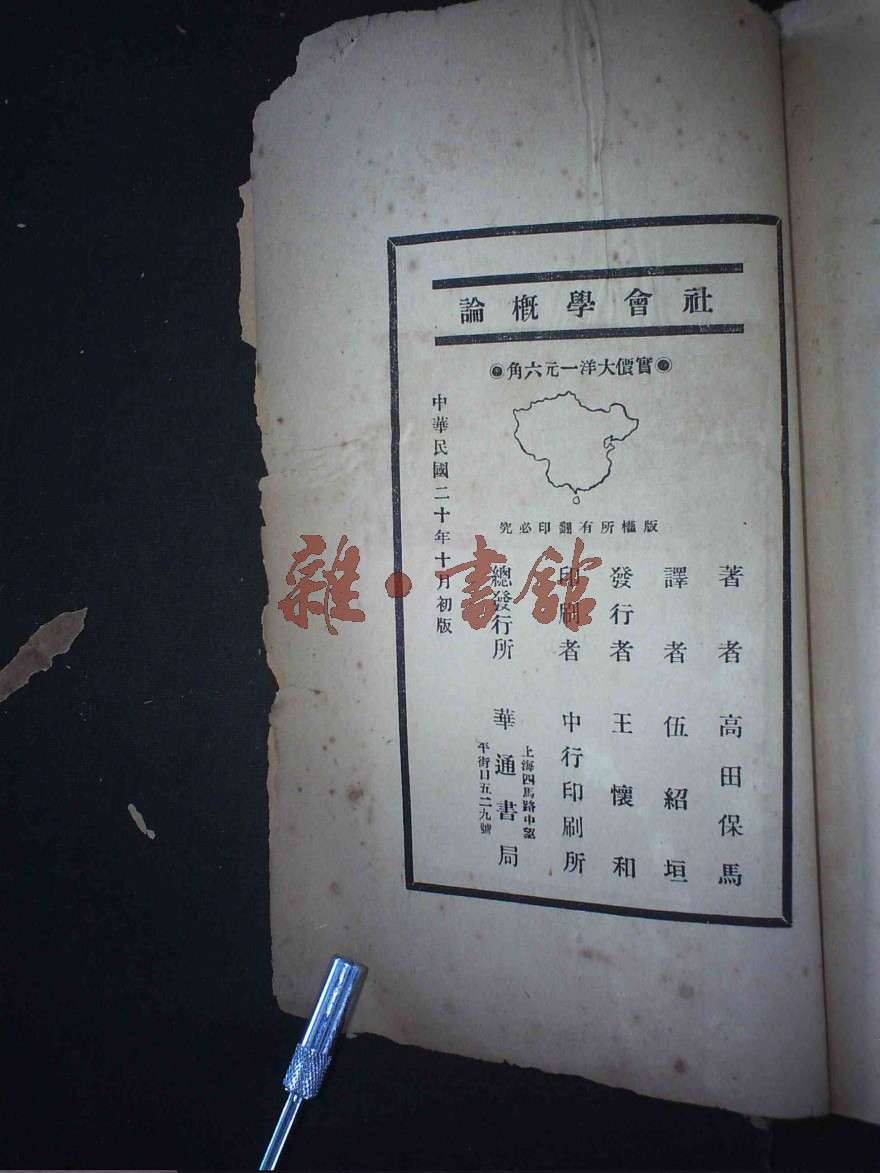 社會學概論
實價大洋一元六角
版權所有翻印必究
著者 高田保馬
譯者 伍紹垣
發行者 王懷和
印刷者 中行印刷所
總發行所 華通書局
上海四馬路中望
平街口五二九號
中華民國二十年十月初版
雜·書館